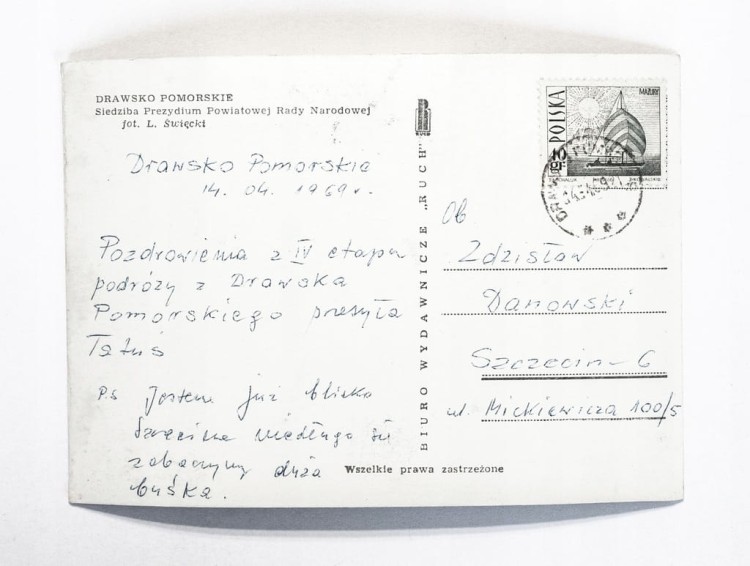 DRAWSKO POMORSKIE
Siedziba Prezydium Powiatowej Rady Narodowej
fot. L. Święcki
Drawsko Pomorskie
14. 04. 1969 r.
Pozdrowienia z IV etapu
podróży z Drawska
Pomorskiego przesyła
Tatuś
P.S Jestem już blisko
Szczecina niedługo się
zobaczymy duża
buśka.
BIURO WYDAWNICZE „RUCH”
RUCH
Wszelkie prawa zastrzeżone
POLSKA
MAZURY
40 gr
Ob
Zdzisław
Danowski
Szczecin - 6
ul. Mickiewicza 100/5